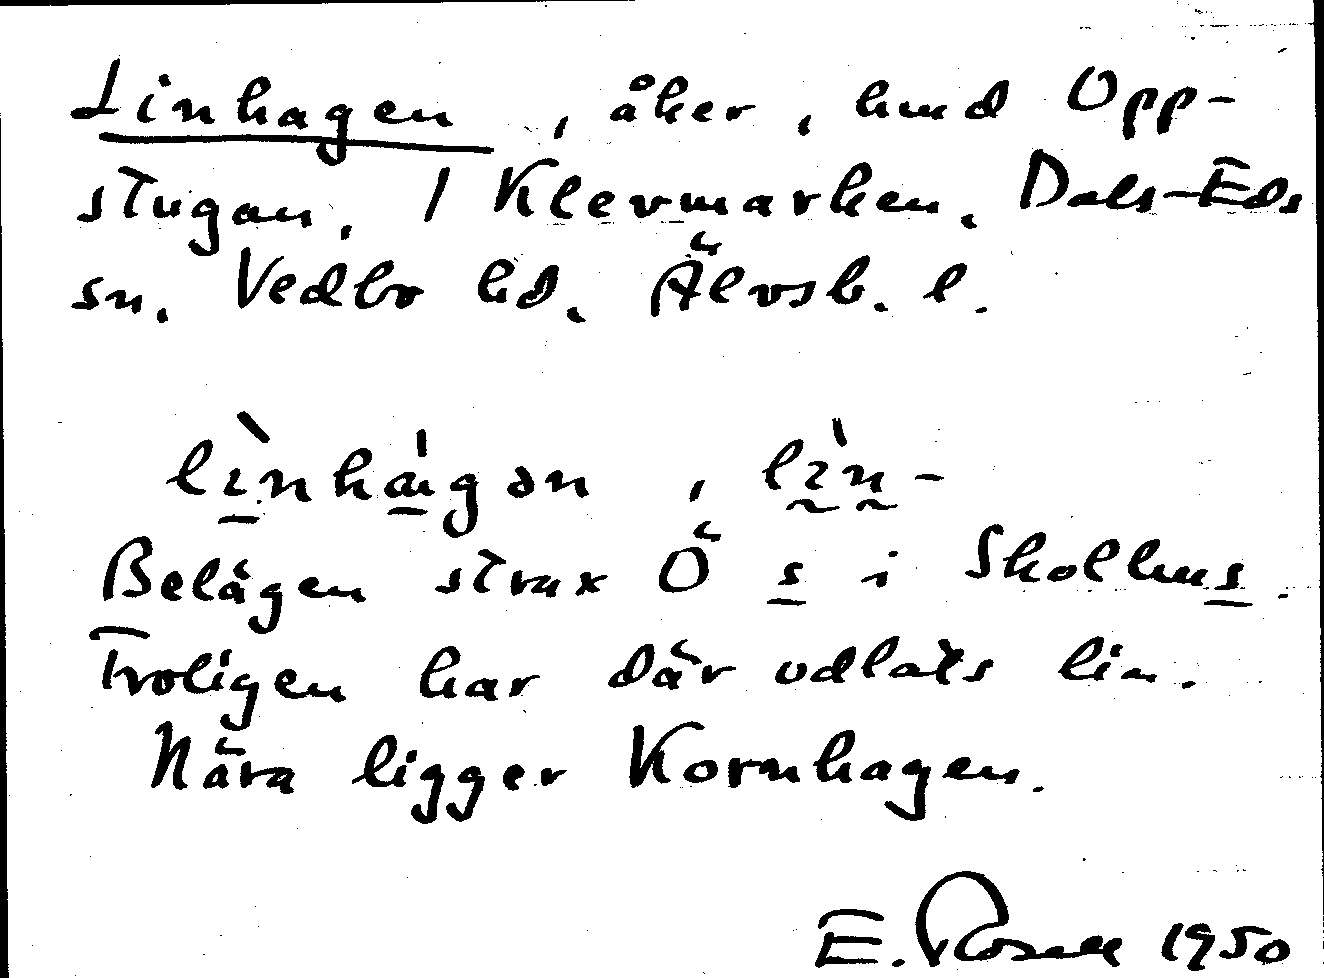 Linhagen, åker, hmd Opp-
stugan, 1 Klevmarken, Dals-Eds
sn, Vedbo hd, Älvsb. l.
lìnhá̱gən, lìn-
Belägen strax Ö s i Skollhus.
Troligen har där odlats lin.
Nära ligger Kornhagen.
E. Rosell 1950